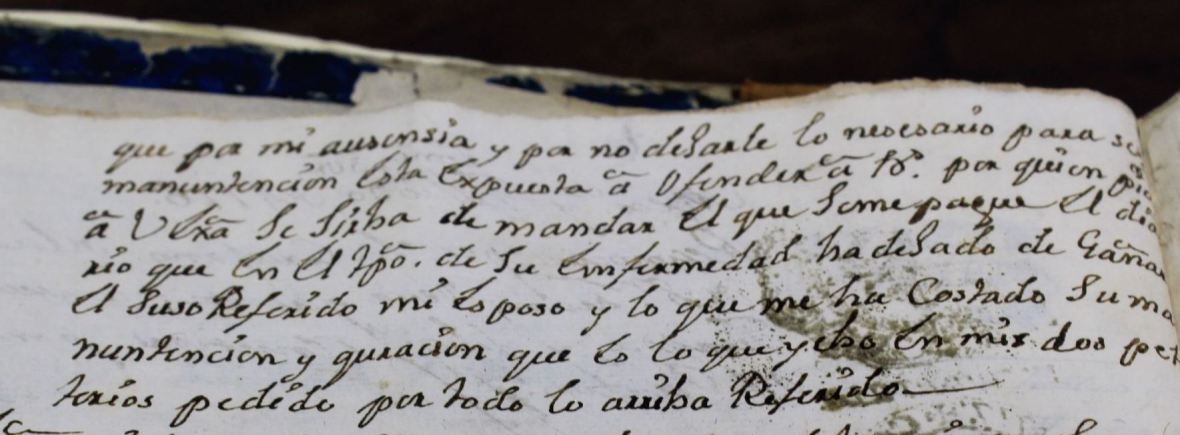 que por mi ausensia y por no dexarle lo nesesario para su
manuntencion esta expuesta â Ofender â Ds. por quien pido
â Vtrâ Se Sirba de mandar El que Seme pague El dia
rio que En El tpo. de Su Enfermedad ha dexado de Ganar
El Suso Referido mi Esposo y lo que me ha Costado Su ma
nuntencion y curacion que Es lo que ycho En mis dos pet
torios pedido por todo lo arriba Referido